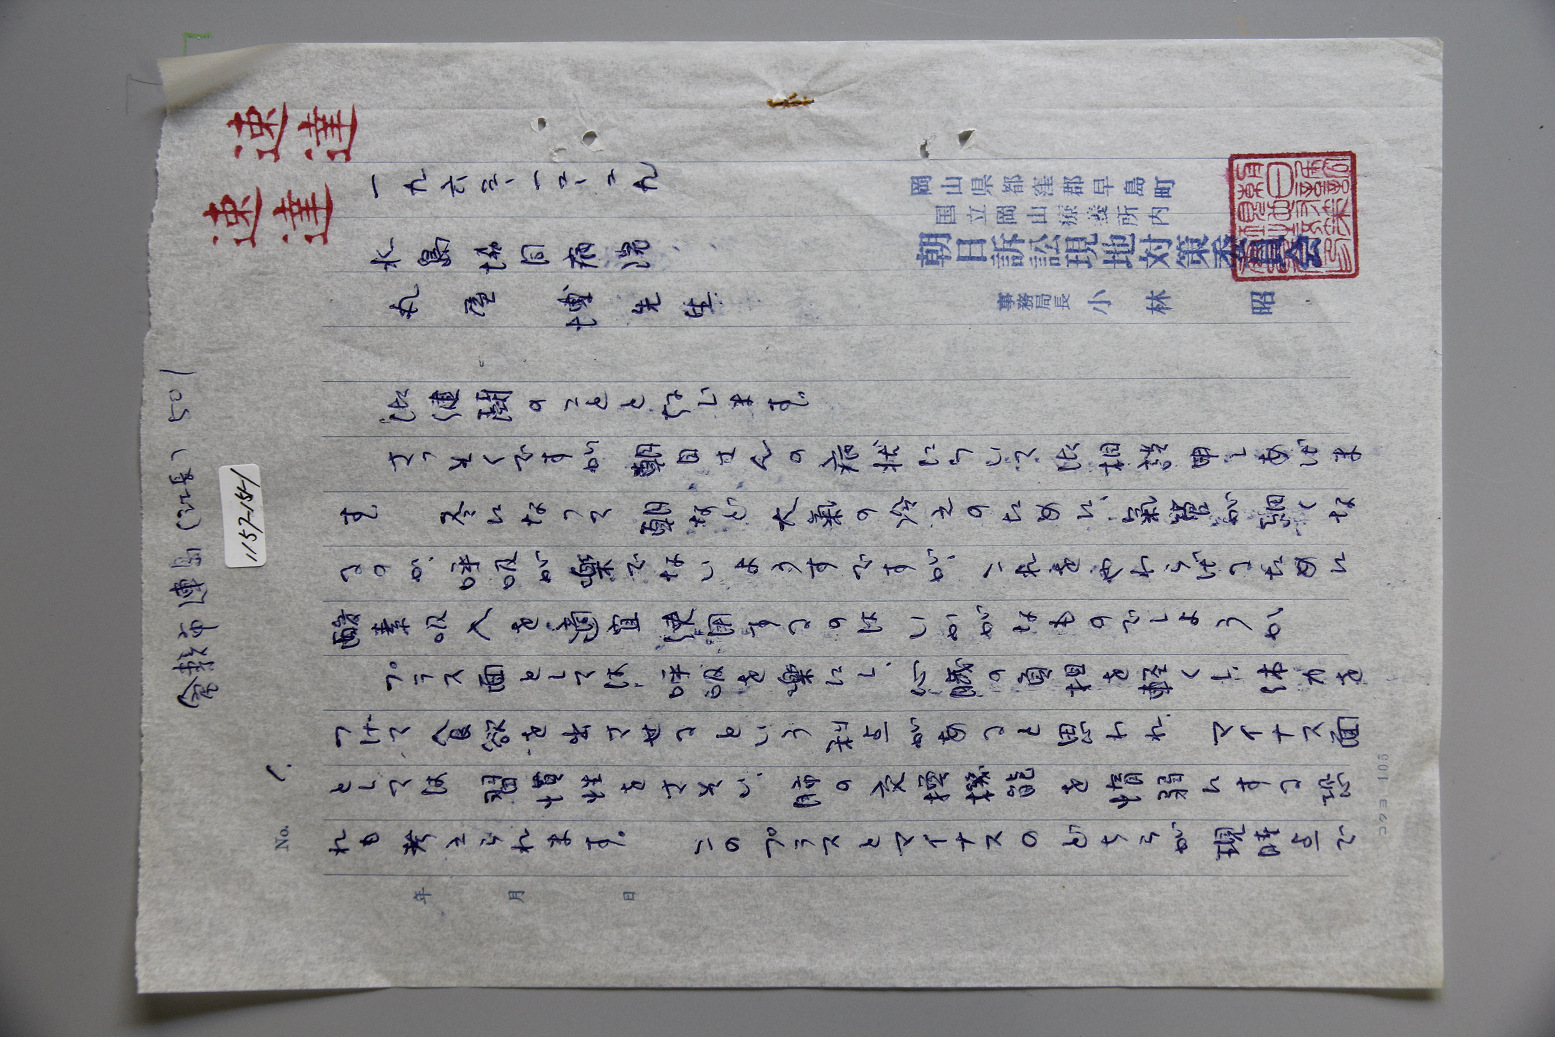 速達
速達
倉敷市連島(江長)501
1157-154-1
No. 1.
一九六三、一二、二九
水島協同病院
丸屋 博先生
岡山県都窪郡早島町
国立岡山療養所内
朝日訴訟現地対策委員会
事務局長 小林 昭
御健闘のことと存じます。
さっそくですが 朝日さんの病状について御相談申しあげま
す 冬になって 朝など 大氣の冷えのために、氣管が細くな
るのか、呼吸が楽でないようすですが、これをやわらげるために
酸素吸入を適宜使用するのは いかがなものでしょうか
プラス面としては、呼吸を楽にし、心臓の負担を軽くし、体力を
つけて 食欲を出させるという利点があると思われ、マイナス面
としては 習慣性をさそい、肺の交換機能を惰弱にする恐
れも考えられます。 このプラスとマイナスのどちらが現時点で
年 月 日
コクヨ 105